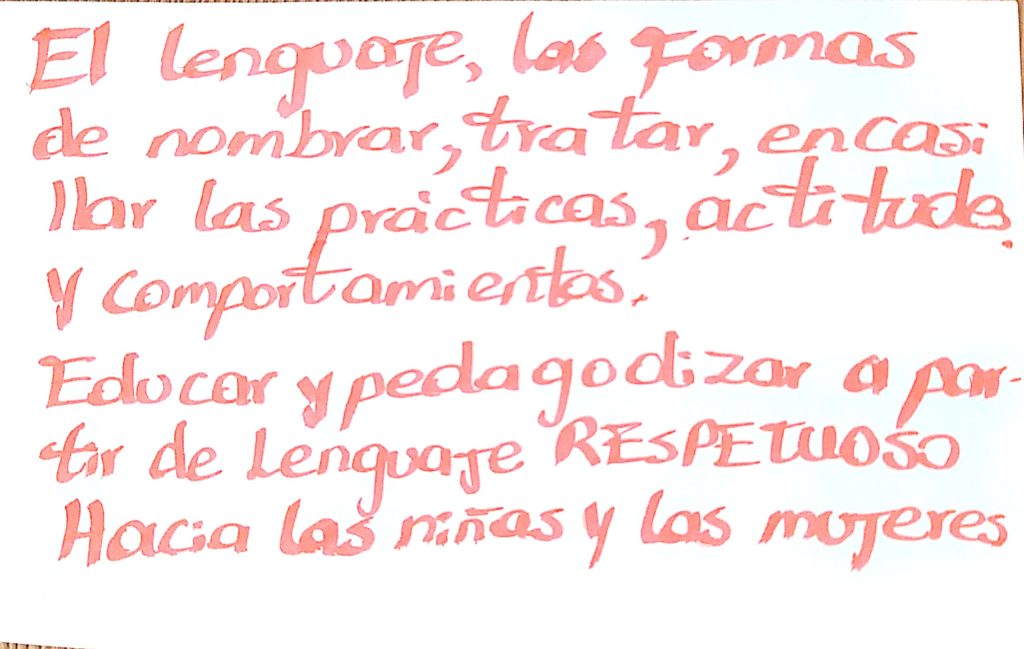 El lenguaje, las formas
de nombrar, tratar, encasi
llar las prácticas, actitudes
y comportamientos.
Educar y pedagodizar a par-
tir de lenguaje RESPETUOSO
Hacia las niñas y las mujeres